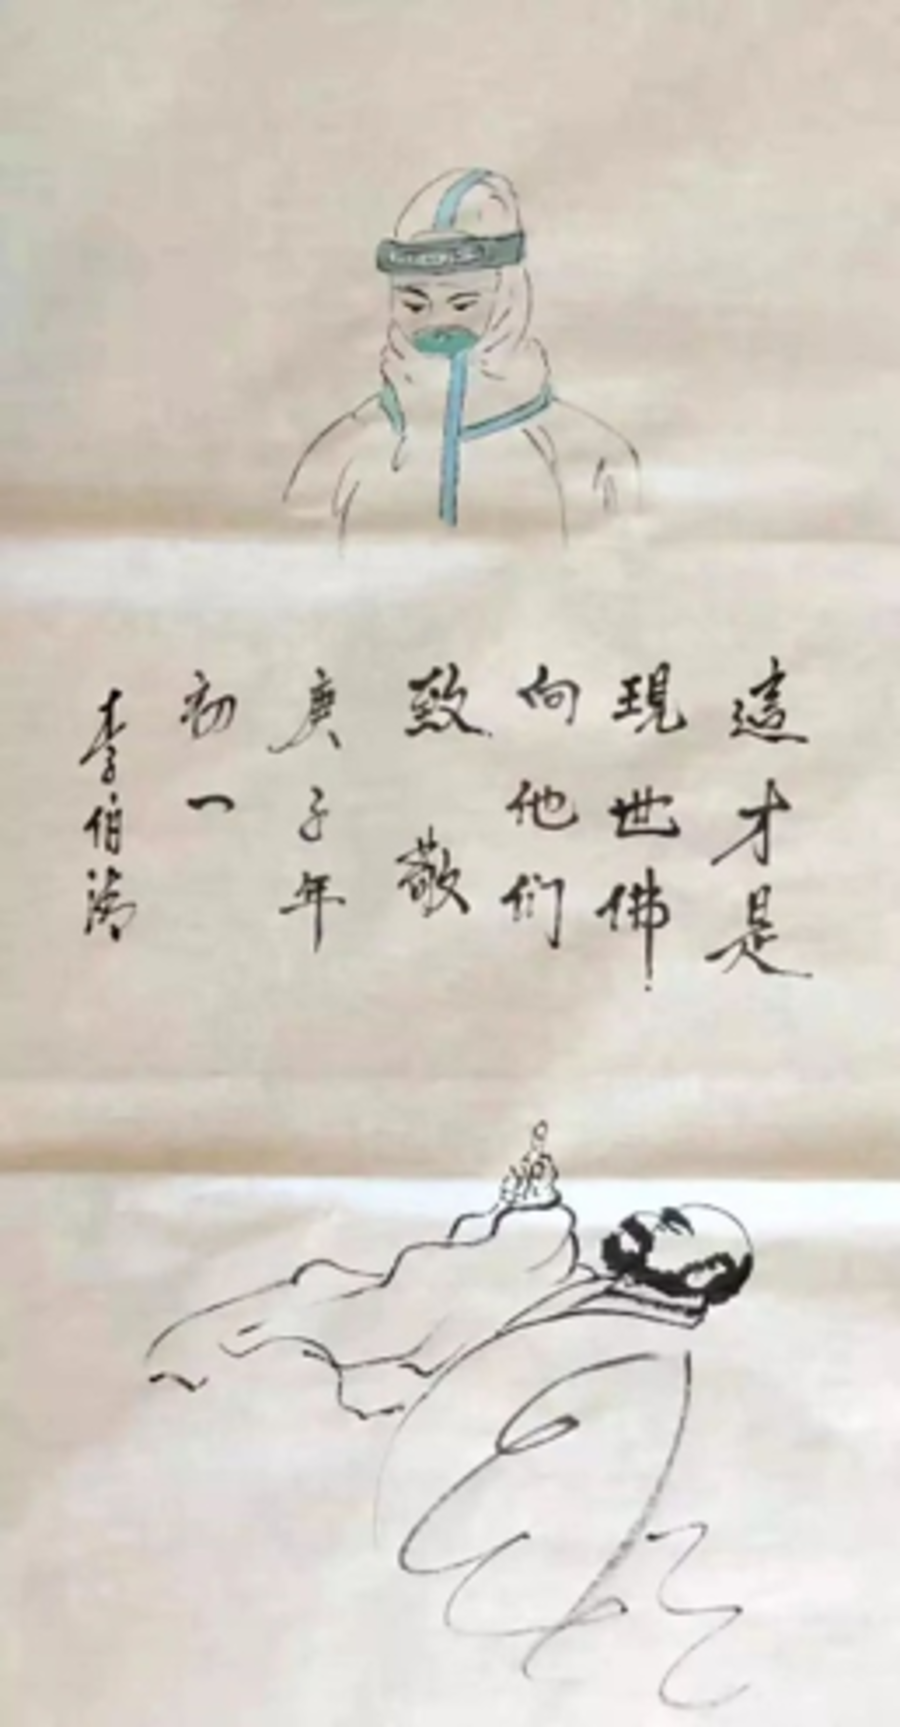 這才是
現世佛
向他们
致敬
庚子年
初一
李伯濤